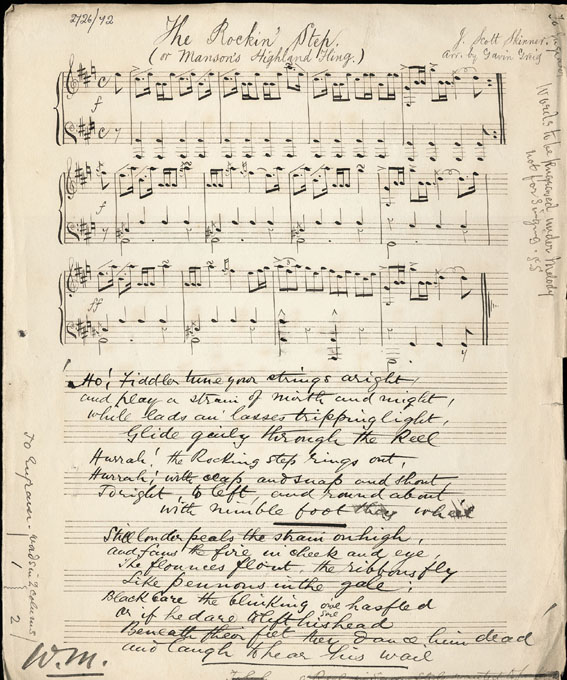 2726/42
The Rockin' Step.
(or Manson's Highland Fling.)
J. Scott Skinner.
arr. by Gavin Greig
To Engraver
Words to be Engraved under Melody
not for
f
f
ff
Ho! Fiddler tune your strings aright,
and play a strain of mirth and might,
while lads an' lasses tripping light,
Glide gaily through the Reel
Hurrah! the Rocking step rings out,
Hurrah! with clap and snap and shout,
To right, to left, and round about
with nimble foot they wheel
Still louder peals the strain on high,
and fans the fire in cheek and eye,
The flounces flout, the ribbons fly
Like pennons in the gale;
Black care the blinking has fled
Or if he dare to lift his head
Beneath their feet they dance him dead
and laugh to hear his wail
To Engraver - words in 2 columns
1
2
W.M.